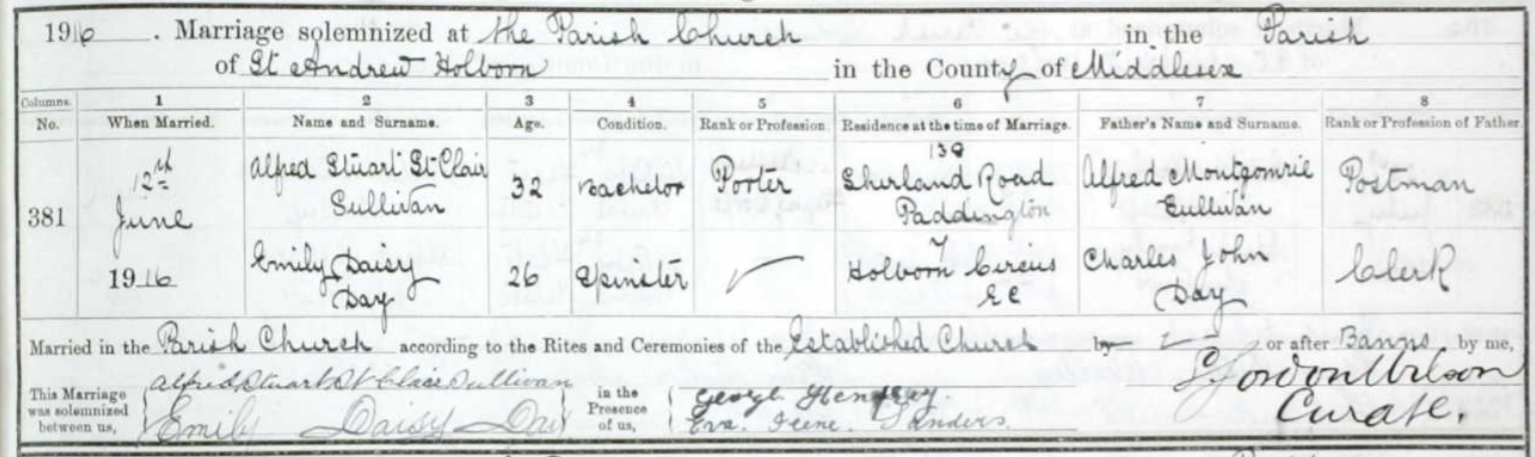 1916 . Marriage solemnized at the Parish Church in the Parish
of St Andrew Holborn in the County of Middlesex
Columns. 1 2 3 4 5 6 7 8
No. When Married. Name and Surname. Age. Condition. Rank or Profession. Residence at the time of Marriage. Father's Name and Surname. Rank or Profession of Father.
138
12th Alfred Stuart St Clair 32 Bachelor Porter Shirland Road Alfred Montgomrie Postman
Sullivan Paddington Sullivan
381 June
Emily Daisy 26 Spinster 7 Holborn Circus Charles John Clerk
1916 Day EC Day
Married in the Parish Church according to the Rites and Ceremonies of the Established Church by or after Banns by me,
This Marriage was solemnized between us, Alfred Stuart St Clair Sullivan in the Presence of us, George Henry Gordon Wilson
Emily Daisy Day Eva. Irene. Sanders. Curate.